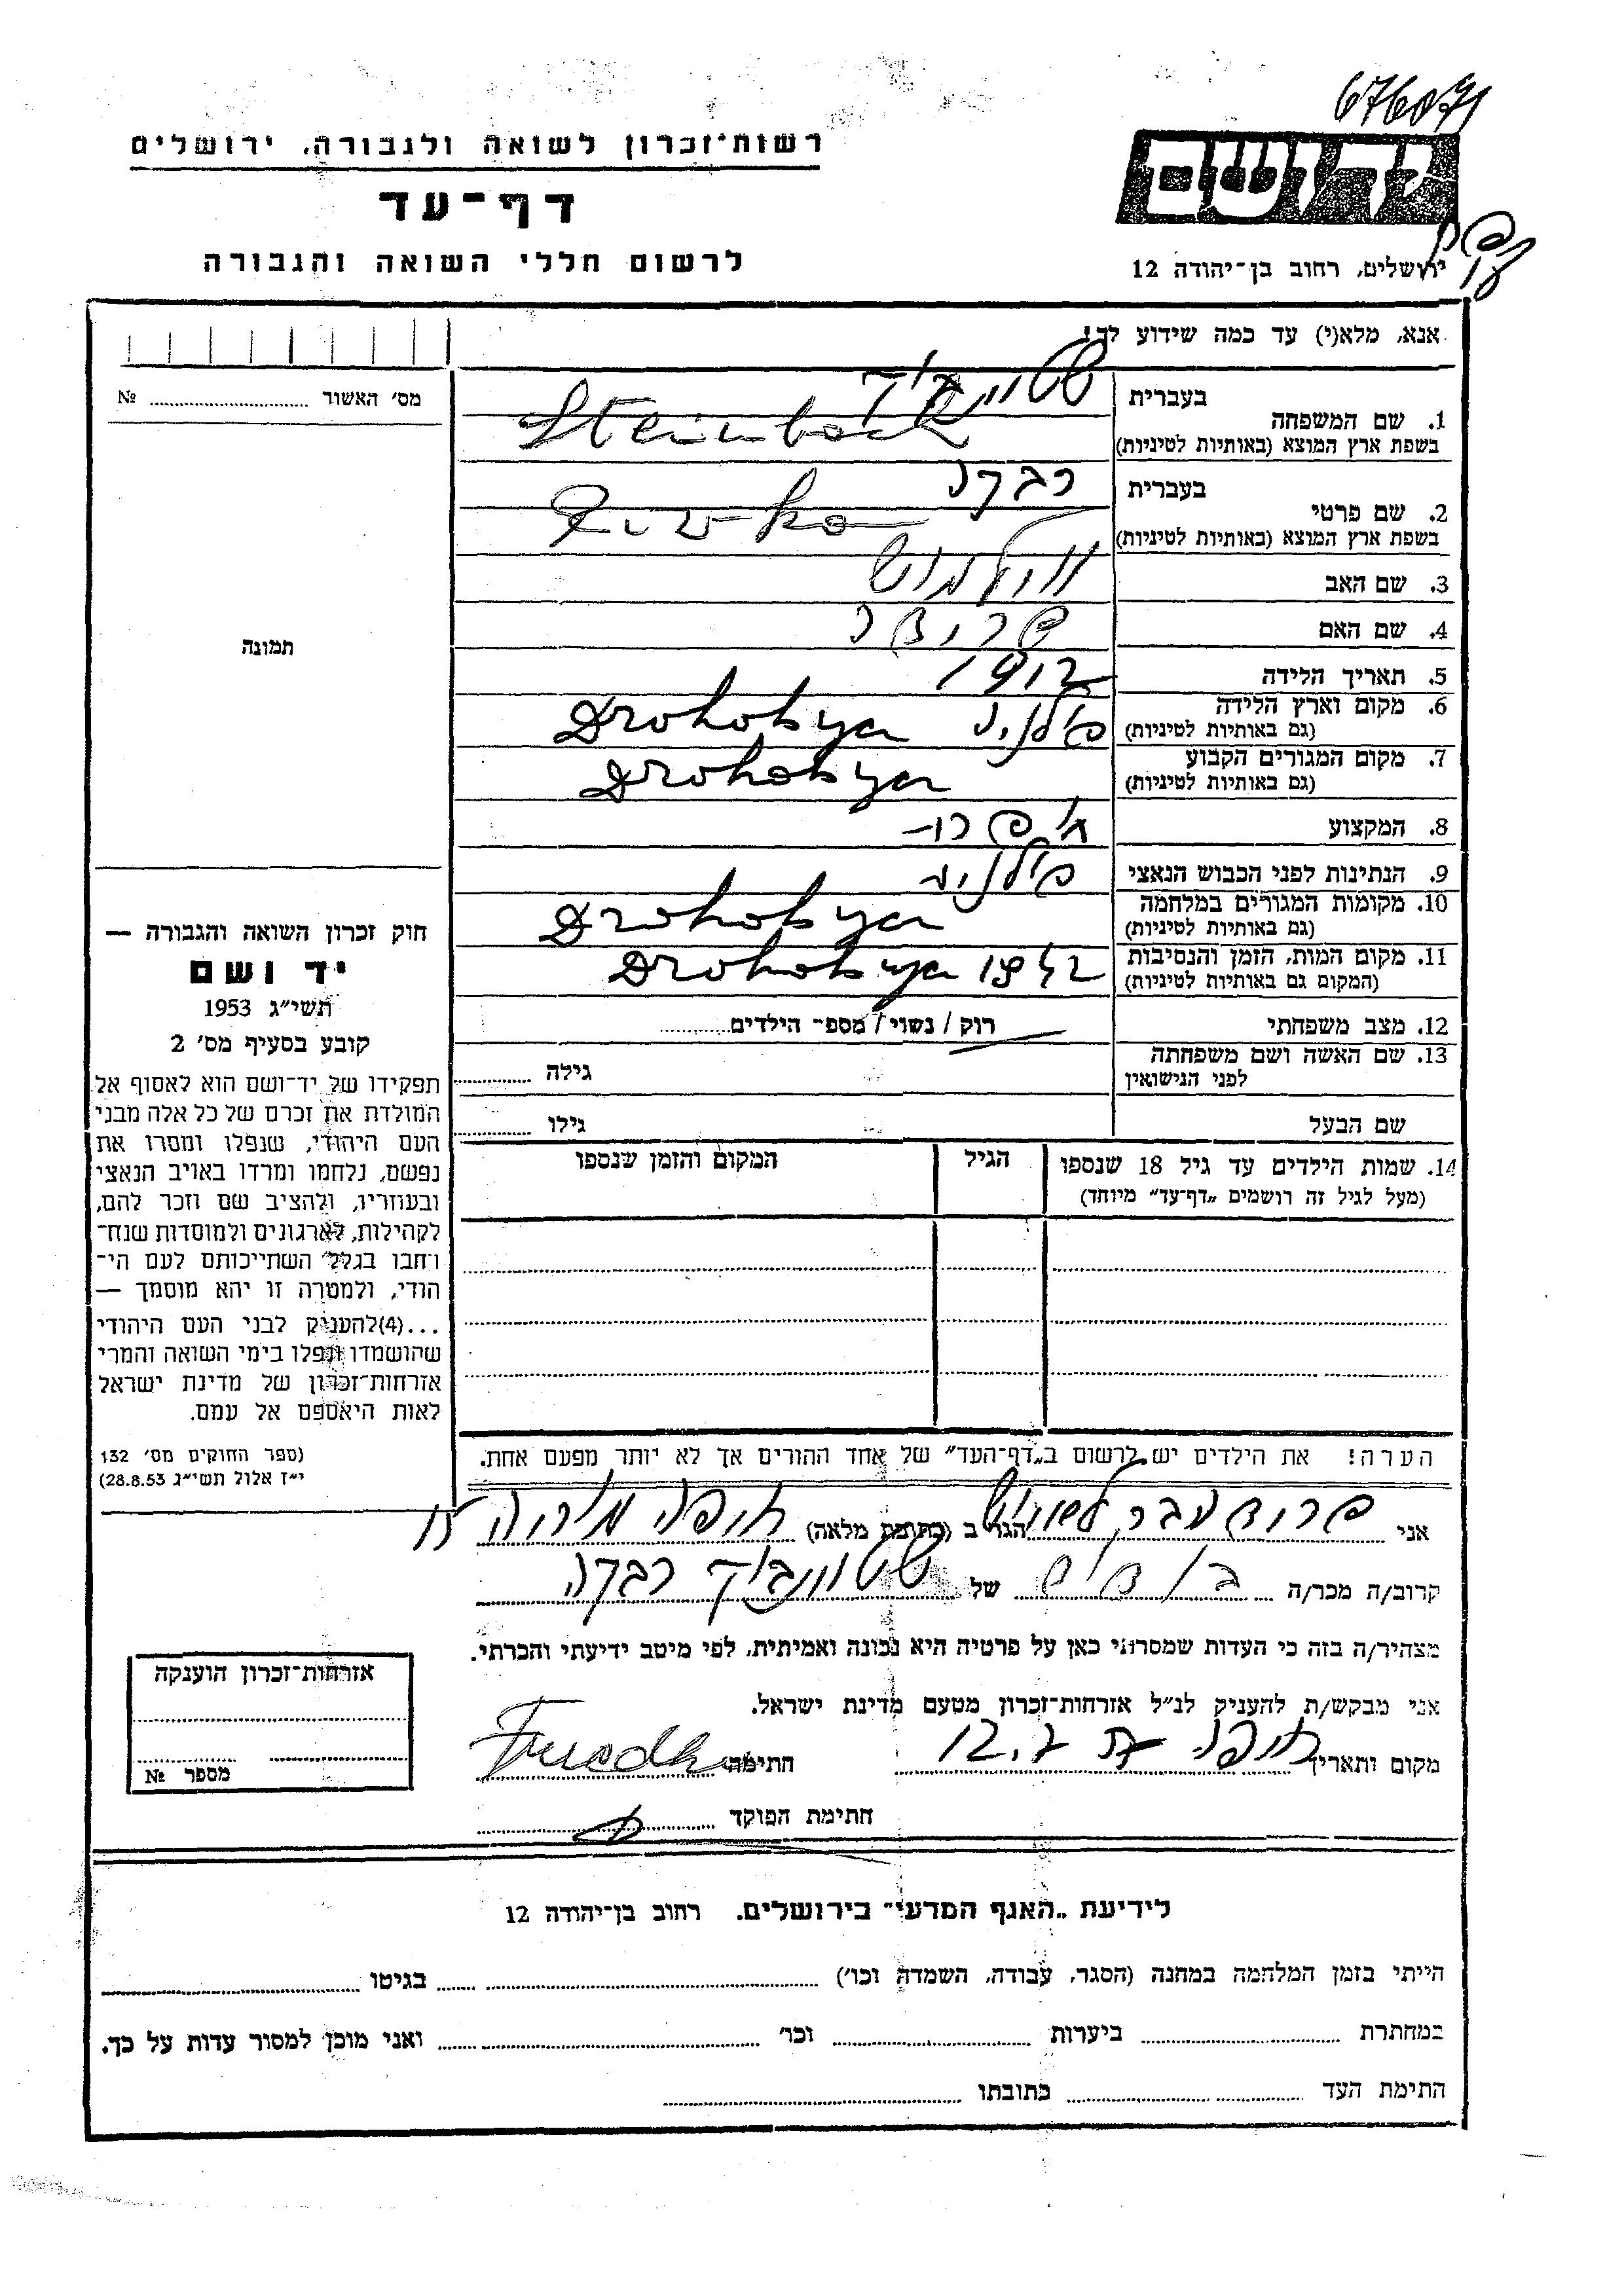 676071
רשות־זכרון לשואה ולגבורה, ירושלים
דף־עד
לרשום חללי השואה והגבורה
ידושם
ירושלים, רחוב בן־יהודה 12
אנא, מלא(י) עד כמה שידוע לך!
מס׳ האשור № 
1. שם המשפחה בעברית שטיינבוק
בשפת ארץ המוצא (באותיות לטיניות) Steinbock
2. שם פרטי בעברית רבקה
בשפת ארץ המוצא (באותיות לטיניות) Riwka
3. שם האב
4. שם האם
5. תאריך הלידה 1912
6. מקום וארץ הלידה (גם באותיות לטיניות) פולניה Drohobycz
7. מקום המגורים הקבוע (גם באותיות לטיניות) Drohobycz
8. המקצוע
9. הנתינות לפני הכבוש הנאצי פולניה
10. מקומות המגורים במלחמה (גם באותיות לטיניות) Drohobycz
11. מקום המות, הזמן והנסיבות (המקום גם באותיות לטיניות) Drohobycz 1942
12. מצב משפחתי רוק / נשוי / מספ־ הילדים
13. שם האשה ושם משפחתה לפני הנישואין גילה
שם הבעל גילו
14. שמות הילדים עד גיל 18 שנספו הגיל המקום והזמן שנספו
(מעל לגיל זה רושמים „דף־עד״ מיוחד)
הערה! את הילדים יש לרשום ב„דף־העד״ של אחד ההורים אך לא יותר מפעם אחת.
תמונה
חוק זכרון השואה והגבורה —
יד ושם
תשי״ג 1953
קובע בסעיף מס׳ 2
תפקידו של יד־ושם הוא לאסוף אל
המולדת את זכרם של כל אלה מבני
העם היהודי, שנפלו ומסרו את
נפשם, נלחמו ומרדו באויב הנאצי
ובעוזריו, ולהציב שם וזכר להם,
לקהילות, לארגונים ולמוסדות שנח־
רחבו בגלל השתייכותם לעם הי־
הודי, ולמטרה זו יהא מוסמך —
...(4)להעניק לבני העם היהודי
שהושמדו ונפלו בימי השואה והמרי
אזרחות־זכרון של מדינת ישראל
לאות היאספם אל עמם.
(ספר החוקים מס׳ 132
י״ז אלול תשי״ג 28.8.53)
אני הגר ב (כתובת מלאה) חיפה
קרוב/ה מכר/ה של שטיינבוק רבקה
מצהיר/ה בזה כי העדות שמסרתי כאן על פרטיה היא נכונה ואמיתית, לפי מיטב ידיעתי והכרתי.
אני מבקש/ת להעניק לנ״ל אזרחות־זכרון מטעם מדינת ישראל.
מקום ותאריך חיפה חתימה
חתימת הפוקד
אזרחות־זכרון הוענקה
מספר №
לידיעת „האגף המדעי״ בירושלים. רחוב בן־יהודה 12
הייתי בזמן המלחמה במחנה (הסגר, עבודה, השמדה וכו׳) בגיטו
במחתרת ביערות וכו׳ ואני מוכן למסור עדות על כך.
התימת העד כתובתו